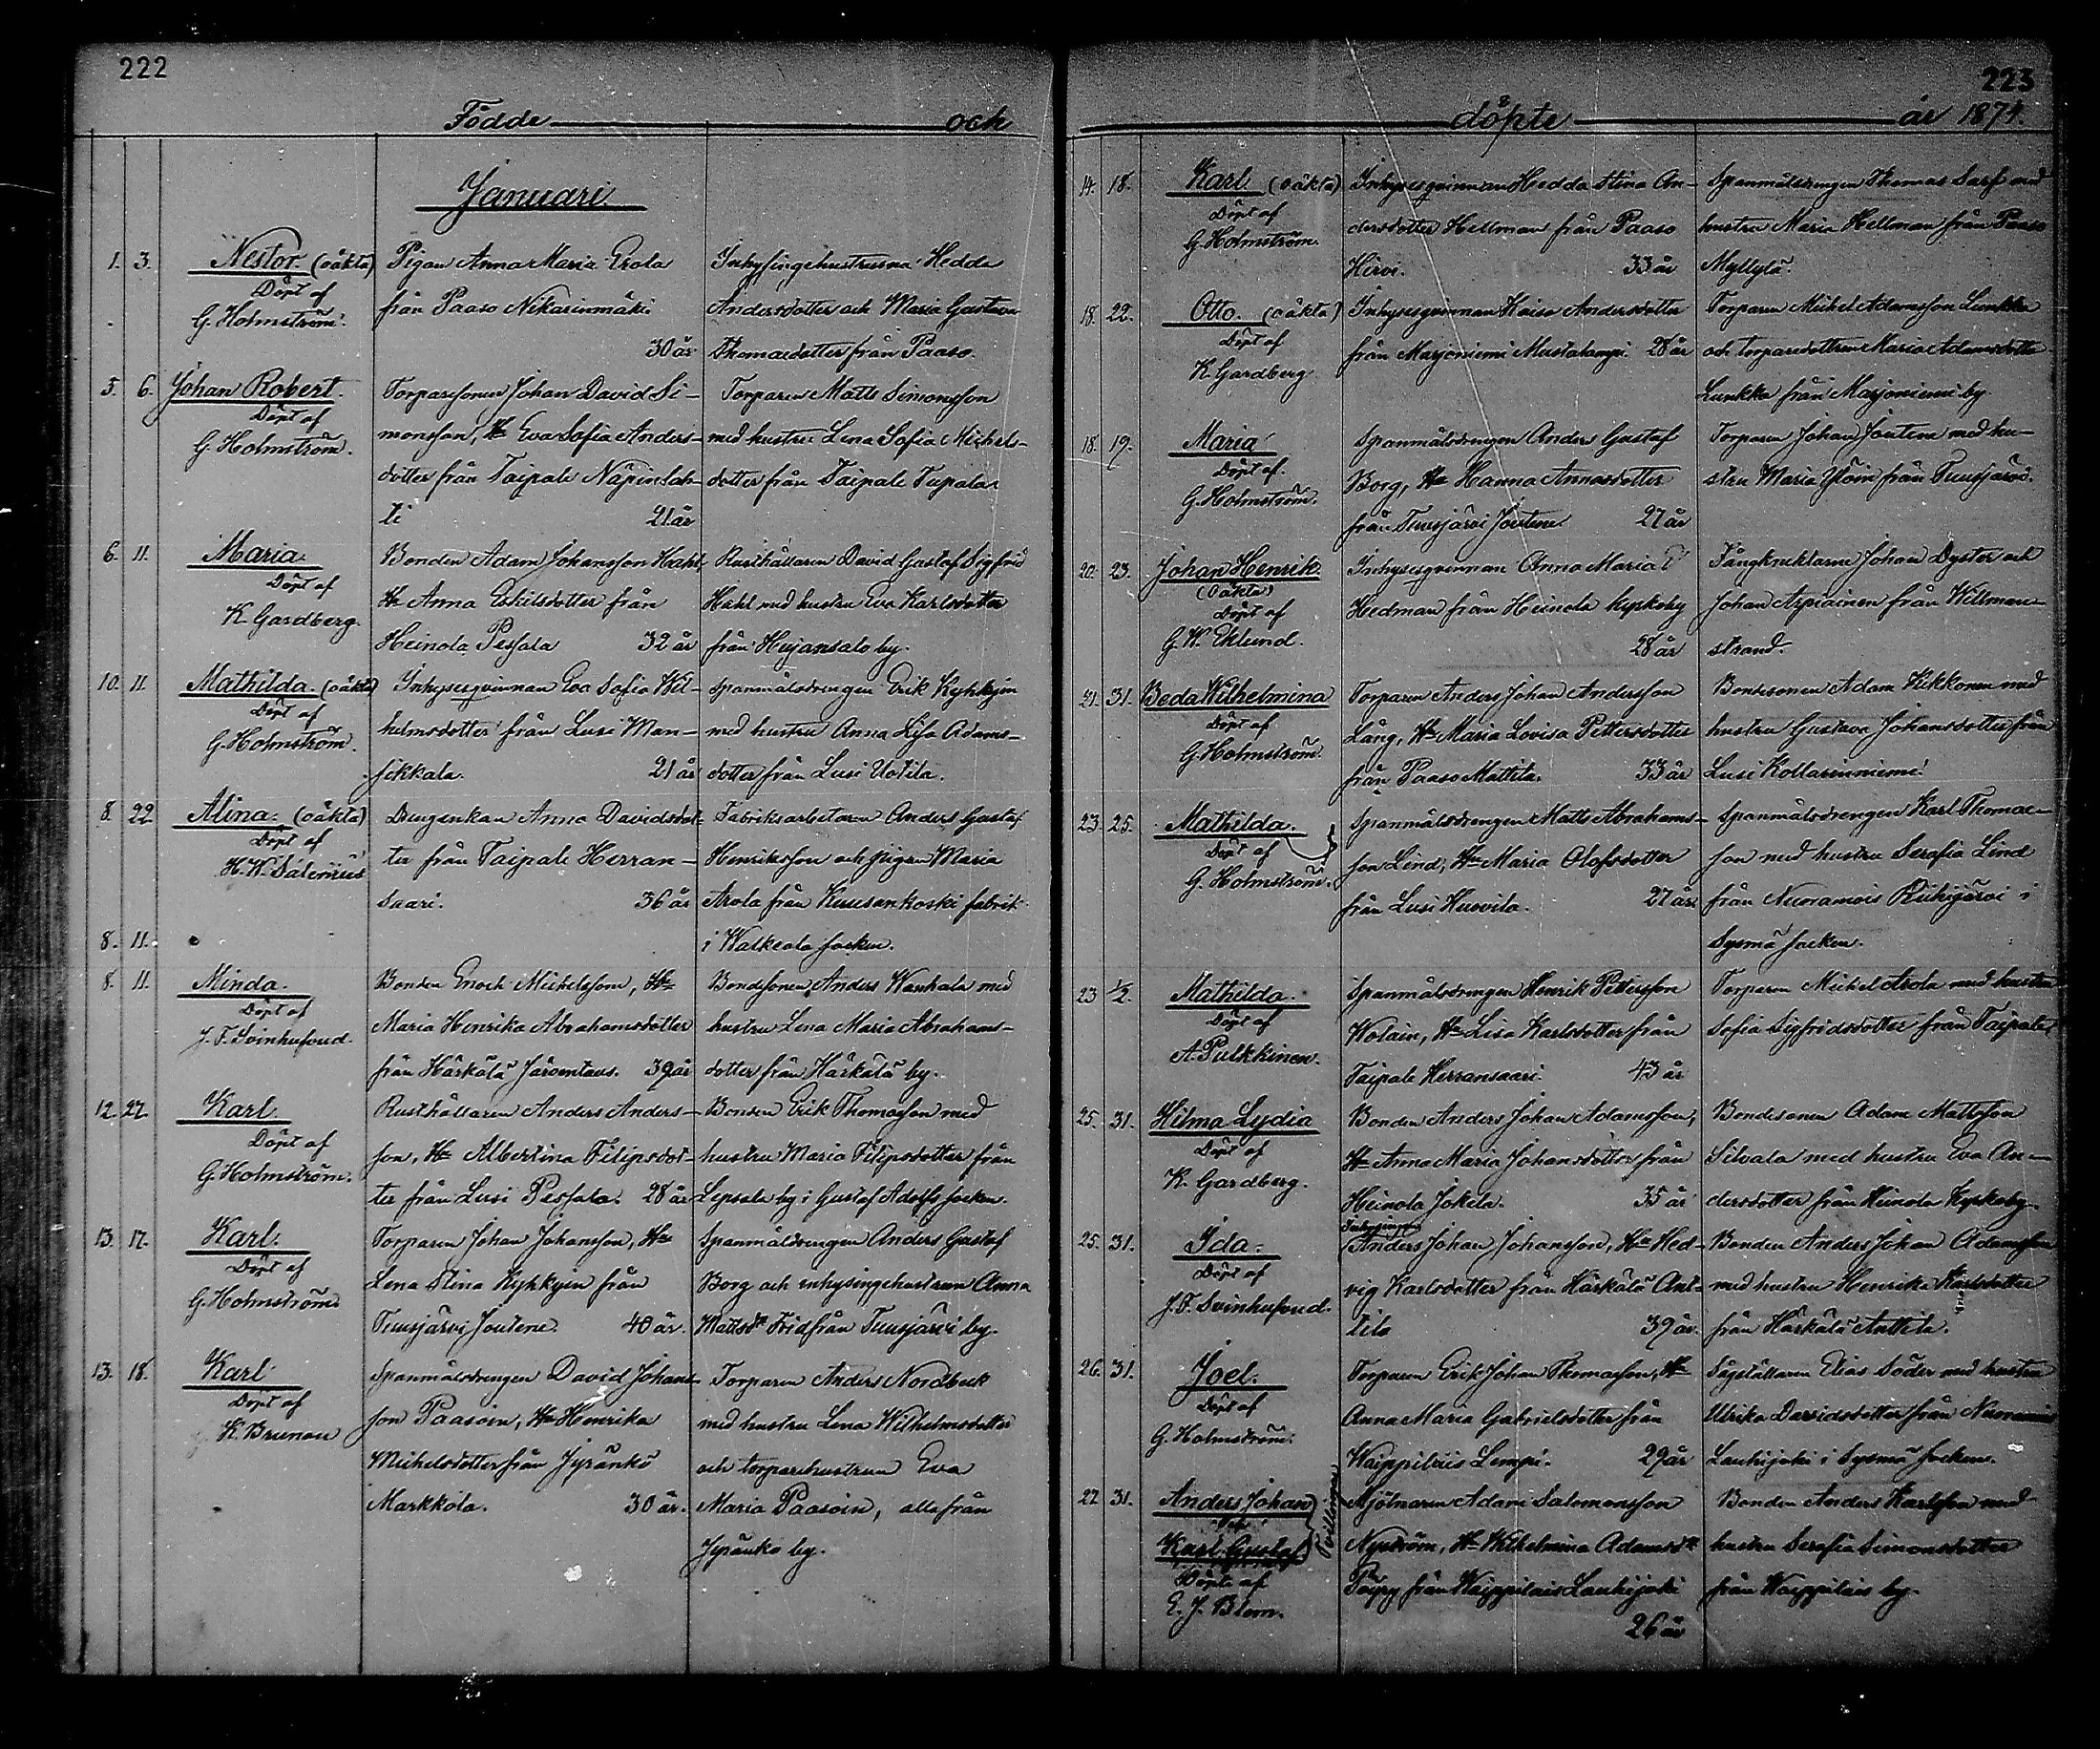 222
Födde och
Januari
1. 3. Nestor. (oäkta) Pigan Anna Maria Erola Inhysingehustrurna Hedda
Döpt af från Paaso Nikarinmäki Andersdotter och Maria Gustava
G. Holmström. 30 år Thomaedotter från Paaso.
5. 6. Johan Robert. Torparesonen Johan David Si- Torparen Matts Simonsson
Döpt af monsson, Hu Eva Sofia Anders- med hustru Lena Sofia Michels-
G. Holmström. dotter från Taipale Näpinlah- dotter från Taipale Tupala
ti 21 år
6. 11. Maria. Bonden Adam Johansson Hahl, Rusthållaren David Gustaf Sigfrid
Döpt af Hu Anna Eskilsdotter från Hahl med hustru Eva Karlsdotter
K. Gardberg. Heinola Pessala 32 år från Hujansalo by.
10. 11. Mathilda. (oäkta) Inhysesqvinnan Eva Sofia Wil- Spanmålsdrengen Erik Kyhkyin
Döpt af helmsdotter från Lusi Man- med hustru Anna Lisa Adams-
G. Holmström. sikkala. 21 år dotter från Lusi Uotila.
8. 22 Alina. (oäkta) Drengenkan Anna Davidsdot- Fabriksarbetaren Anders Gustaf
Döpt af ter från Taipale Herran- Henriksson och pigan Maria
H. W. Salenius saari. 36 år Arola från Kuusankoski fabrik
8. 11. i Walkeala socken.
8. 11. Minda. Bonden Enoch Michelsson, Hu Bondsonen Anders Wanhala med
Döpt af Maria Henrika Abrahamsdotter hustru Lena Maria Abrahams-
J. F. Svinhufvud. från Härkälä Järventaus. 39 år dotter från Härkälä by.
12. 22. Karl. Rusthållaren Anders Anders- Bonden Erik Thomasson med
Döpt af son, Hu Albertina Filipsdot- hustru Maria Filipsdotter från
G. Holmström. ter från Lusi Pessala. 28 år Lepsala by i Gustaf Adolfs socken.
13. 17. Karl. Torparen Johan Johansson, Hu Spanmåldrengen Anders Gustaf
Döpt af Lena Stina Kyhkyin från Borg och inhysingehustrun Anna
G. Holmström Tuusjärvi Joutene. 40 år. Mattsdr Frid från Tuusjärvi by.
13. 18. Karl Spanmålsdrengen David Johans- Torparen Anders Nordbeck
Döpt af son Paasoin, Hu Henrika med hustru Lena Wilhelmsdotter
K. Brunou Michelsdotter från Jyränkö och torparehustrun Eva
Markkola. 30 år. Maria Paasoin, alla från
Jyränkö by.
223
döpte år 1874.
14. 18. Karl. (oäkta) Inhysesqvinnan Hedda Stina An- Spanmålsdrengen Thomas Sarf med
Döpt af dersdotter Hellman från Paaso hustru Maria Hellman från Paaso
G. Holmström. Hirvi. 33 år Myllylä.
18. 22. Otto. (oäkta) Inhysesqvinnan Kaisa Andersdotter Torparen Michel Adamsson Lunkka
Döpt af från Marjoniemi Mustalampi 28 år och torparedottren Maria Adamsdotter
K. Gardberg Lunkka från Marjoniemi by.
18. 19. Maria Spanmålsdrengen Anders Gustaf Torparen Johan Joutene med hu-
Döpt af Borg, Hu Hanna Annasdotter stru Maria Ylöin från Tuusjärvi.
G. Holmström. från Tuusjärvi Joutene 27 år
20. 23. Johan Henrik. Inhysesqvinnan Anna Maria Fångknektarne Johan Dyster och
(oäkta) Hedman från Heinola kyrkoby Johan Arpiainen från Willman-
Döpt af 28 år strand.
G. W. Eklund.
21. 31. Beda Wilhelmina Torparen Anders Johan Andersson Bondesonen Adam Kikkonen med
Döpt af Lång, Hu Maria Lovisa Pettersdotter hustru Gustava Johansdotter från
G. Holmström. från Paaso Mattila. 33 år Lusi Kollarinniemi.
23. 25. Mathilda. Spanmålsdrengen Matts Abrahams- Spanmålsdrengen Karl Thomas-
Döpt af son Lind, Hu Maria Olofsdotter son med hustru Serafia Lind
G. Holmström. från Lusi Huovila. 27 år från Nuoramois Riihijärvi i
Sysmä socken.
23 1/2. Mathilda. Spanmålsdrengen Henrik Pettersson Torparen Michel Arola med hustru
Döpt af Wolain, Hu Lisa Karlsdotter från Sofia Sigfridsdotter från Taipale
A. Pulkkinen. Taipale Herransaari. 43 år
25. 31. Hilma Lydia Bonden Anders Johan Adamsson, Bondesonen Adam Mattsson
Döpt af Hu Anna Maria Johansdotter från Silvala med hustru Eva An-
K. Gardberg. Heinola Jokela. 35 år dersdotter från Heinola Kyrkoby.
25. 31. Ida. Anders Johan Johansson, Hu Hed- Bonden Anders Johan Adamsson
Döpt af vig Karlsdotter från Härkälä Ant- med hustru Henrika Karlsdotter
J. F. Svinhufvud. tila 39 år. från Härkälä Anttila.
26. 31. Joel. Torparen Erik Johan Thomasson, Hu Sågställaren Elias Söder med hustru
Döpt af Anna Maria Gabrielsdotter från Ulrika Davidsdotter från Nuoramois
G. Holmström. Waippilais Lempi. 29 år Lauhijoki i Sysmä socken.
27. 31. Anders Johan Mjölnaren Adam Salomonsson Bonden Anders Karlsson med
och Tvillingar
Karl Gustaf Nyström, Hu Wilhelmina Adamsdr hustru Serafia Simonsdotter
Döpta af Töyry från Waippilais Lauhijoki från Waippilais by.
E. J. Blom. 26 år